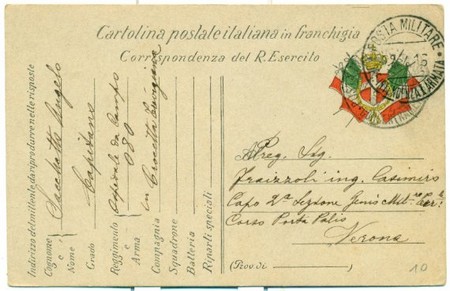 Cartolina postale italiana in franchigia
Corrispondenza del R. Esercito
POSTA MILITARE
Indirizzo del mittente da riprodurre nelle risposte
Cognome Sacchetti Angelo
Nome
Grado Capitano
Reggimento Ospedale da Campo
Arma 080
Compagnia in Crocetta
Squadrone
Batteria
Riparti speciali
Preg. Sig.
Fraizzoli ing. Casimiro
Capo 2ª Sezione Genio Milre
Corso Porta Palio
Verona
(Prov. di)
10